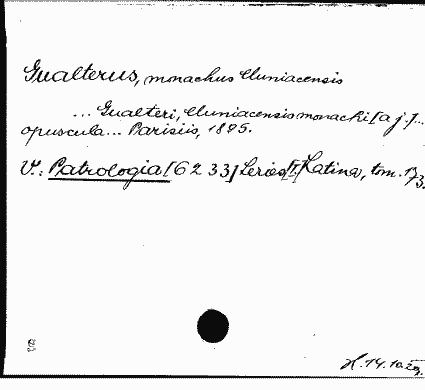 Gualterus, monachus Cluniacensis
... Gualteri, Cluniacensis monachi [a j.]...
opuscula... Parisiis, 1895.
V.: Patrologia [6233] Series [I] Latina, tom. 173.
H. 14.10.29.